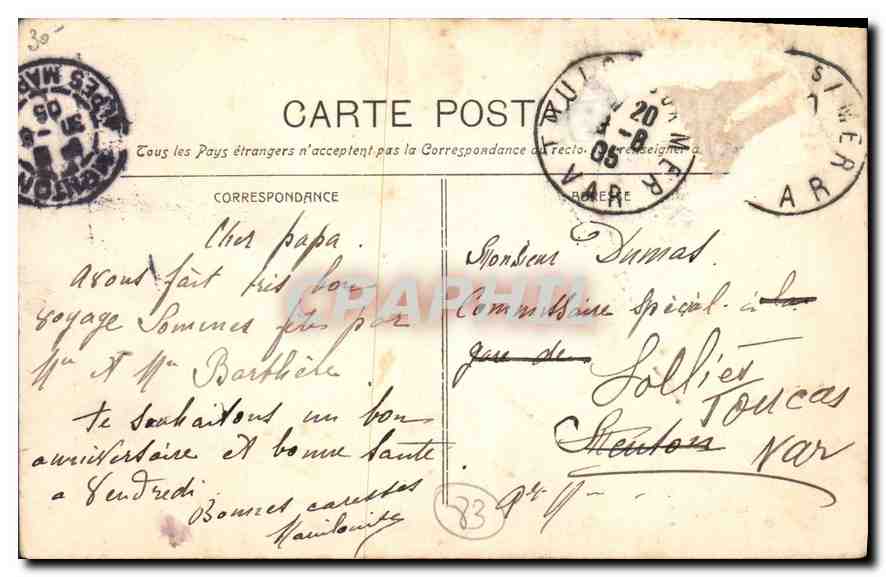 30-
CARTE POST
Tous les Pays étrangers n'acceptent pas la Correspondance au recto renseigner à
CORRESPONDANCE
ADRESSE
MENTON
ALPES MAR
TOULO SUR MER
20
-8
05
VAR
S/MER
AR
CRAPHIL
Cher papa.
Avons fait très bon
voyage Sommes
Mr et Mme Barthière
te souhaitons un bon
anniversaire et bonne Santé
a Vendredi
Bonnes caresses
Monsieur Dumas
Commissaire Spécial à la
gare de
Solliès
Toucas
Menton
Var
83